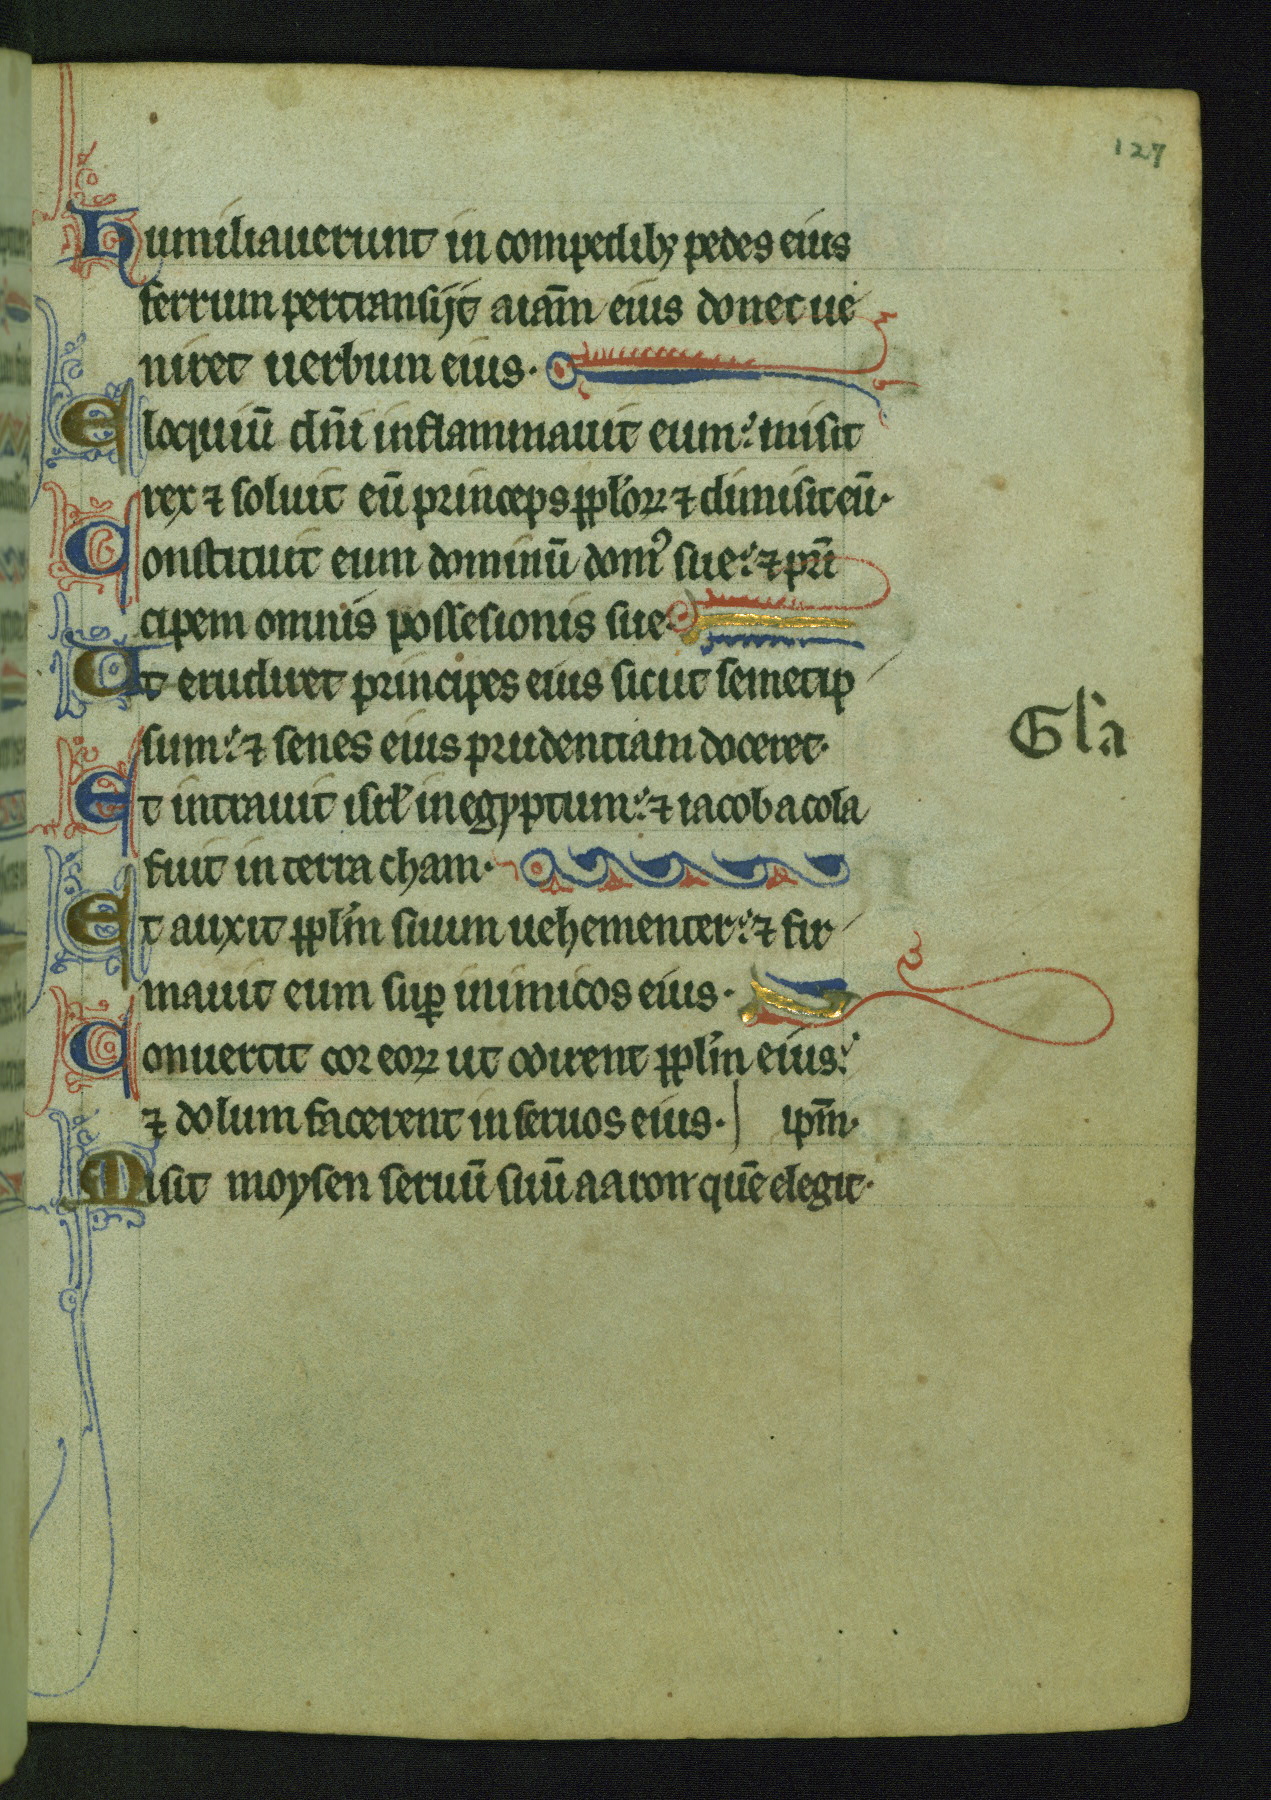 127
Humiliauerunt in compedibꝫ pedes eius
ferrum pertransijt aiām eius donec ue
niret uerbum eius.
Eloquiū dn̄i inflammauit eum: misit
rex ⁊ soluit eū princeps pp̄loꝝ ⁊ dimisit eū.
Constituit eum dominū domꝰ sue: ⁊ prī
cipem omnis possesionis sue.
Ut erudiret principes eius sicut semetip
sum: ⁊ senes eius prudentiam doceret.
Gl'a
Et intrauit isrl̄ in egyptum: ⁊ iacob acola
fuit in terra cham.
Et auxit pp̄lm suum uehementer: ⁊ fir
mauit eum suꝑ inimicos eius.
Conuertit cor eoꝝ ut odirent pp̄lm eius:
⁊ dolum facerent in seruos eius. ip̄m.
Misit moysen seruū suū aaron quē elegit.